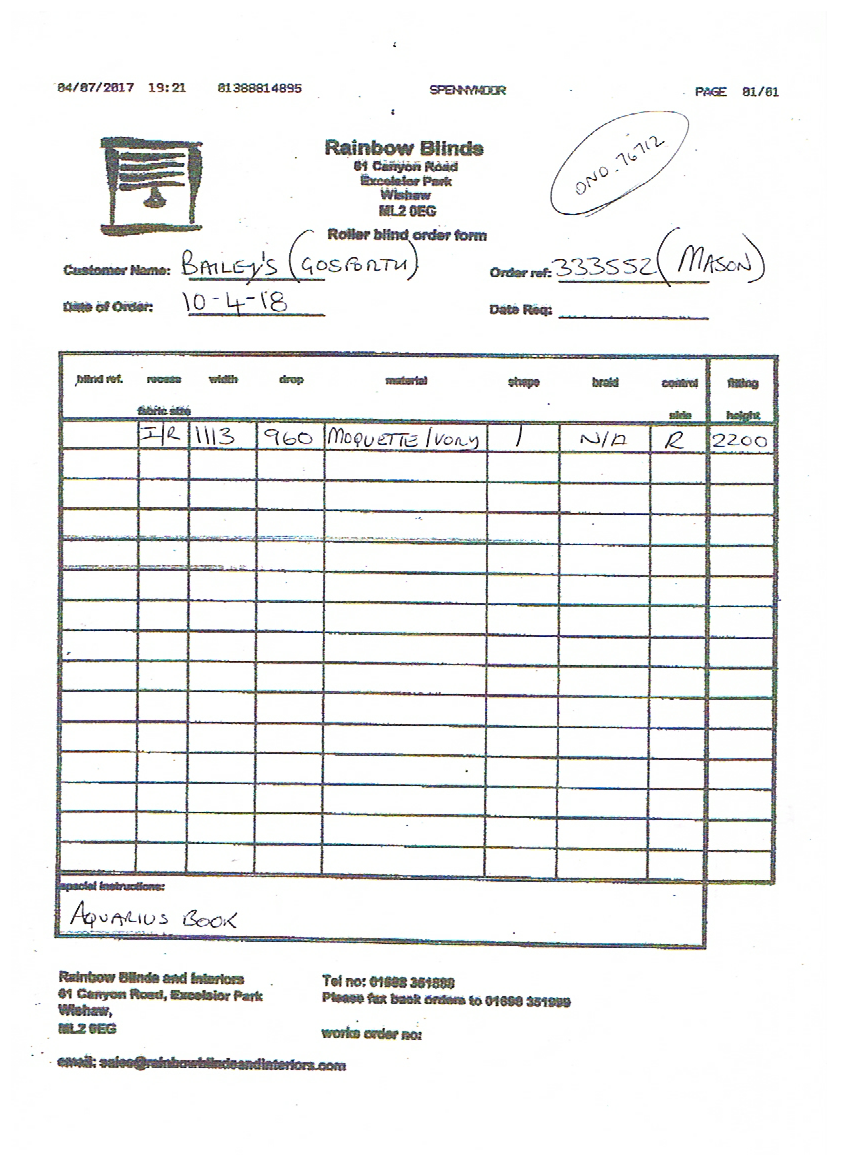 04/07/2017 19:21 01388814895 SPENNYMOOR PAGE 01/01
Rainbow Blinds
61 Canyon Road
Excelsior Park
Wishaw
ML2 0EG
Roller blind order form
ONO. 76712
Customer Name: BAILEY'S (GOSFORTH) Order ref: 333552 (MASON)
Date of Order: 10-4-18 Date Req:
blind ref. recess width drop material shape braid control fitting
fabric size side height
I/R 1113 960 MOQUETTE IVORY 1 N/A R 2200
special instructions:
AQUARIUS BOOK
Rainbow Blinds and Interiors Tel no: 01698 351888
61 Canyon Road, Excelsior Park Please fax back orders to 01698 351999
Wishaw,
ML2 0EG works order no:
email: sales@rainbowblindsandinteriors.com